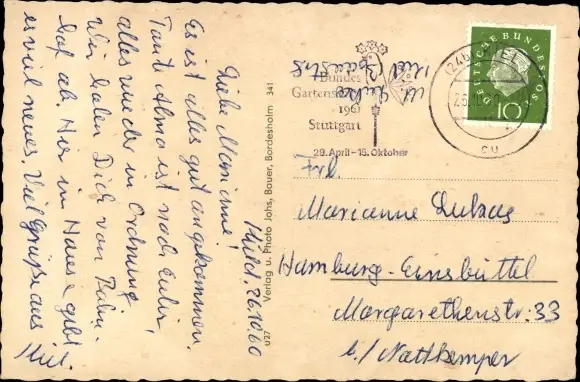 Kiel, 26.10.60
Liebe Marianne!
Es ist alles gut angekommen.
Tante Alma ist nach
alles wieder in Ordnung
Wir holen Dich von Bahn-
hof ab. Hier im Hause gibt
es viel neues. Viel Grüße aus
Kiel.
U27 Verlag u. Photo Johs, Bauer, Bordesholm 341
Bundes
Gartenschau
1961
Stuttgart
29. April - 15. Oktober
DEUTSCHE BUNDESPOST
10
(24b) KIEL
cu
Frl.
Marianne Lukas
Hamburg-Eimsbüttel
Margarethenstr. 33
b./ Nattkemper